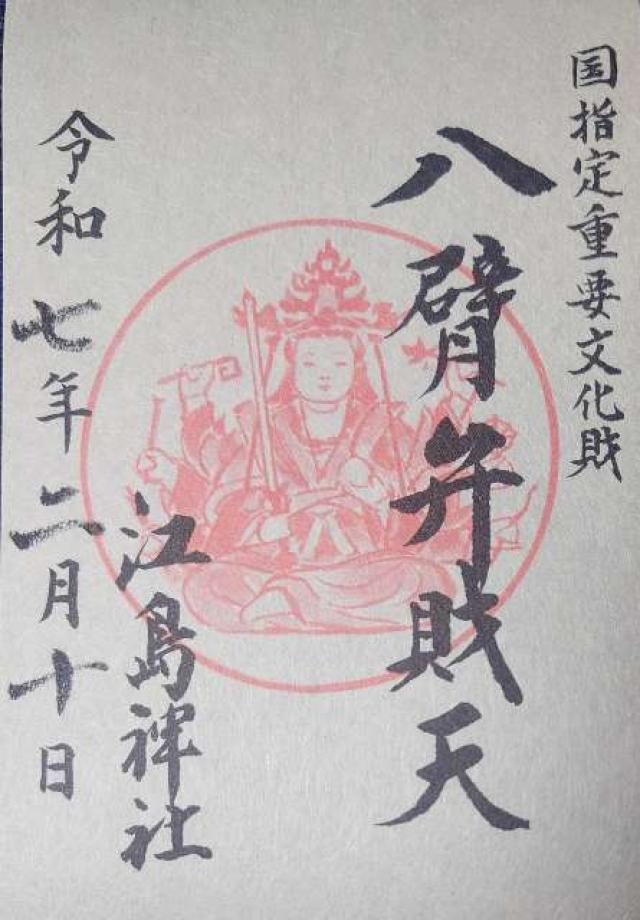 国指定重要文化財
八臂弁財天
江島神社
令和七年二月十日